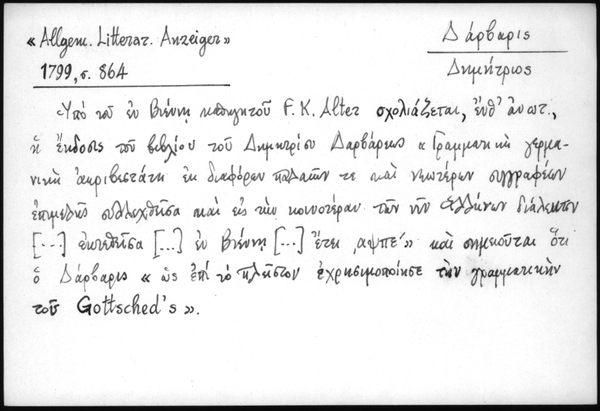 «Allgem. Litterar. Anzeiger»
1799, σ. 864
Δάρβαρις
Δημήτριος
Ὑπὸ τοῦ ἐν Βιέννῃ καθηγητοῦ F. K. Alter σχολιάζεται, ἐνθ' ἀνωτ.,
ἡ ἔκδοσις τοῦ βιβλίου τοῦ Δημητρίου Δαρβάρεως «Γραμματικὴ γερμα-
νικὴ ἀκριβεστάτη ἐκ διαφόρων παλαιῶν τε καὶ νεωτέρων συγγραφέων
ἐπιμελῶς συλλεχθεῖσα καὶ εἰς τὴν κοινοτέραν τῶν νῦν Ἑλλήνων διάλεκτον
[...] ἐκτεθεῖσα [...] ἐν Βιέννῃ [...] ἔτει ͵αψπε΄» καὶ σημειοῦται ὅτι
ὁ Δάρβαρις «ὡς ἐπὶ τὸ πλεῖστον ἐχρησιμοποίησε τὴν γραμματικὴν
τοῦ Gottsched's».